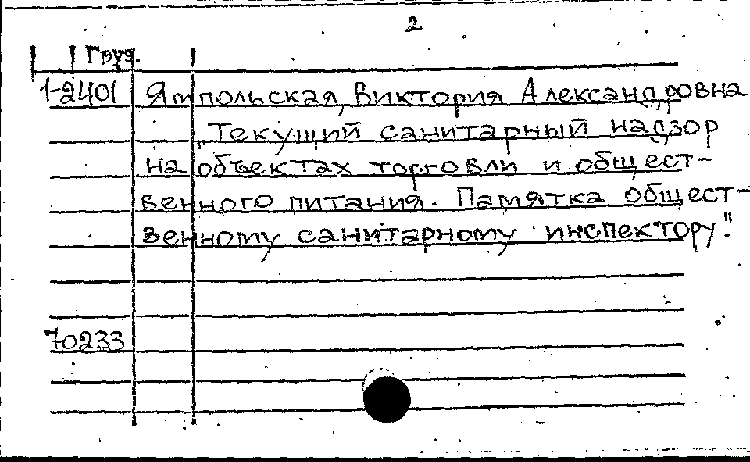 2
Груз.
1-2401 Ямпольская, Виктория Александровна
„Текущий санитарный надзор
на объектах торговли и общест-
венного питания. Памятка общест-
венному санитарному инспектору".
70233